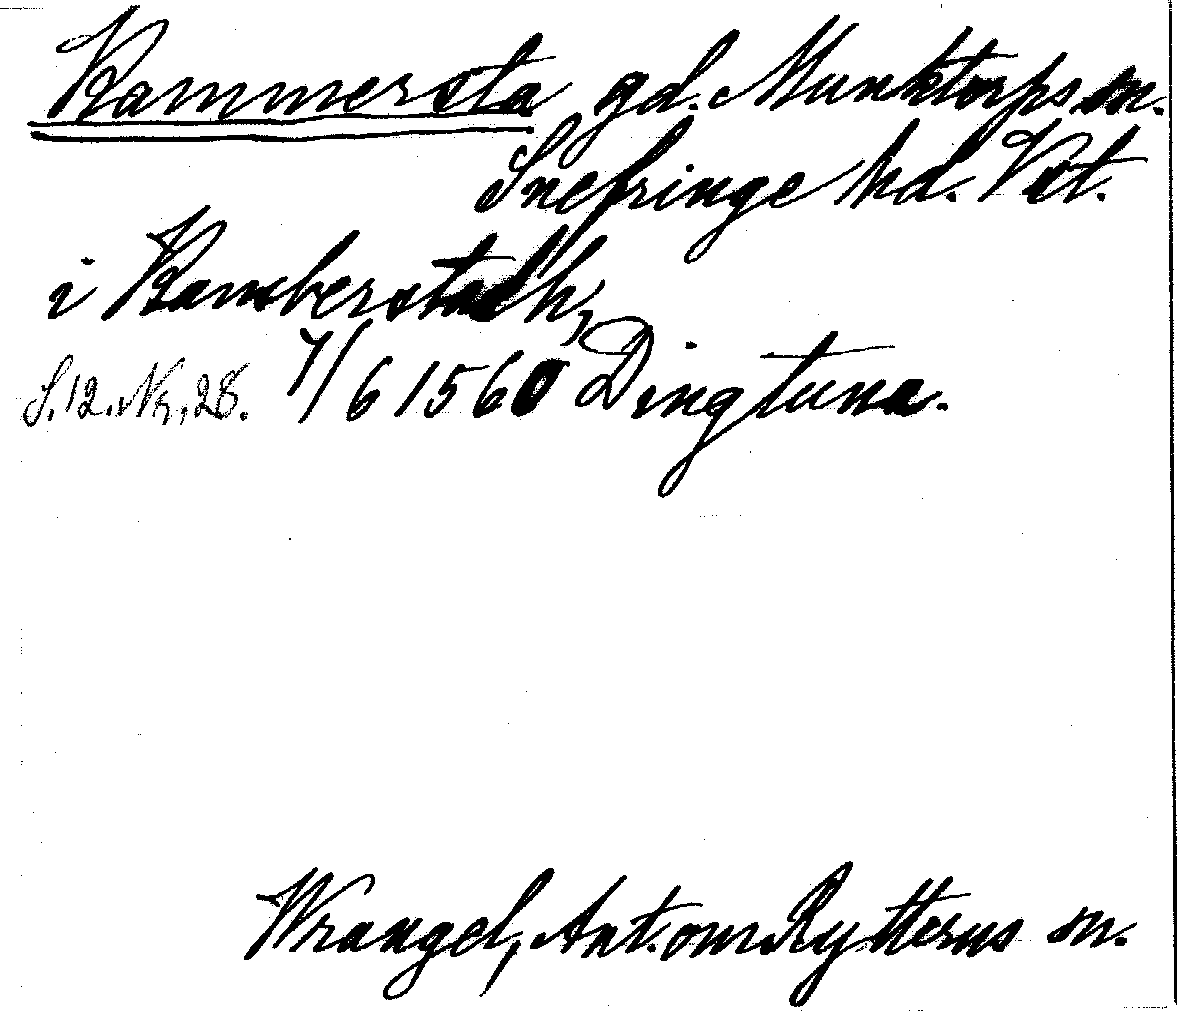 Kammersta gd. Munktorps sn.
Snefringe hd. Vstl.
i Kamberstadh,
S. 12. Nr. 28. 7/6 1560 Dingtuna.
Wrangel, Ant. om Rytterns sn.